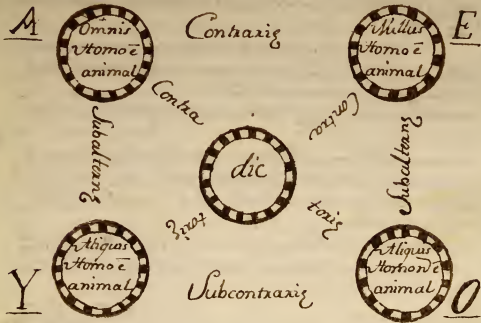 A
Omnis
Homo ē
animal
Contrariȩ
Nullus
Homo ē
animal
E
Contra
Contra
Subalternȩ
dic
Subalternȩ
toriȩ
toriȩ
Y
Aliquis
Homo ē
animal
Subcontrariȩ
Aliquis
Homo nō ē
animal
O